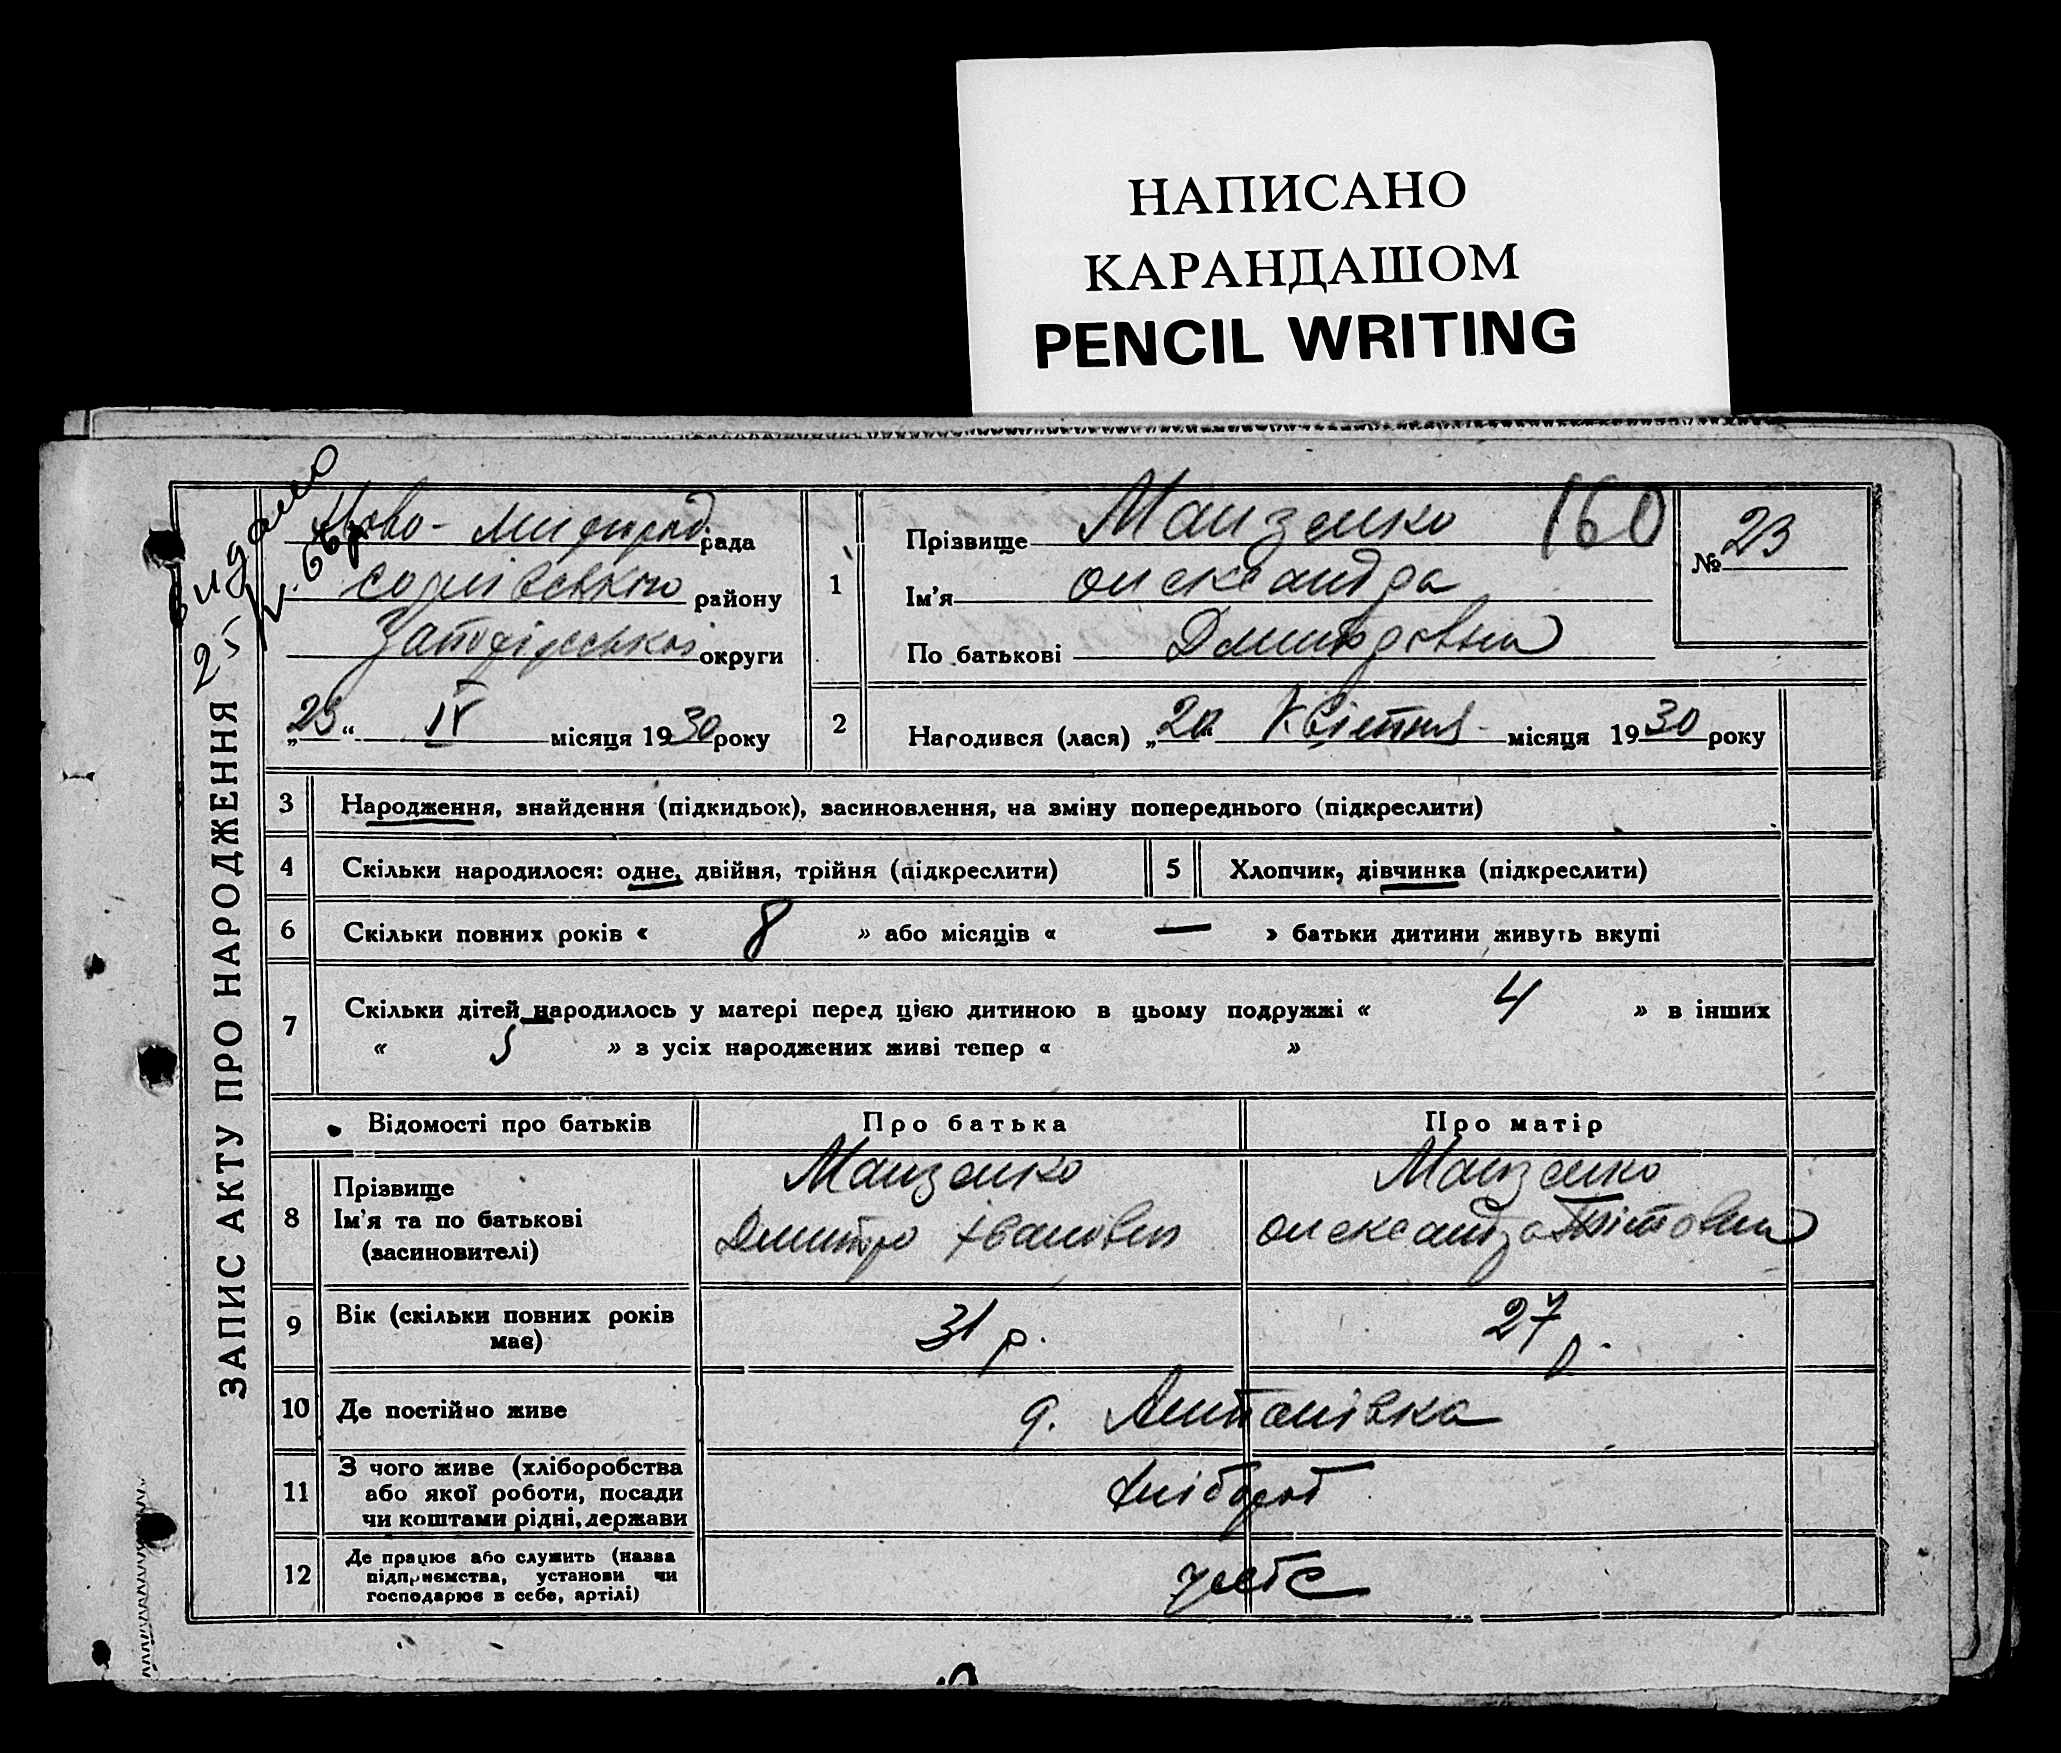 НАПИСАНО
КАРАНДАШОМ
PENCIL WRITING
ЗАПИС АКТУ ПРО НАРОДЖЕННЯ
Видано
25
Ново- рада
району
округи
„23“ IV місяця 1930 року
1
Прізвище 160
Ім'я Олександра
По батькові Дмитровна
№ 23
2 Народився (лася) „20“ Квітня місяця 1930 року
3 Народження, знайдення (підкидьок), засиновлення, на зміну попереднього (підкреслити)
4 Скільки народилося: одне, двійня, трійня (підкреслити) 5 Хлопчик, дівчинка (підкреслити)
6 Скільки повних років « 8 » або місяців « — » батьки дитини живуть вкупі
7 Скільки дітей народилось у матері перед цією дитиною в цьому подружжі « 4 » в інших
« 5 » з усіх народжених живі тепер « »
Відомості про батьків Про батька Про матір
8 Прізвище
Ім'я та по батькові
(засиновителі)
Дмитро Іванович
Олександра Тітовна
9 Вік (скільки повних років
має)
31 р. 27 р.
10 Де постійно живе
11 З чого живе (хліборобства
або якої роботи, посади
чи коштами рідні, держави
Хлібороб
12 Де працює або служить (назва
підприємства, установи чи
господарює в себе, артілі)
у себе